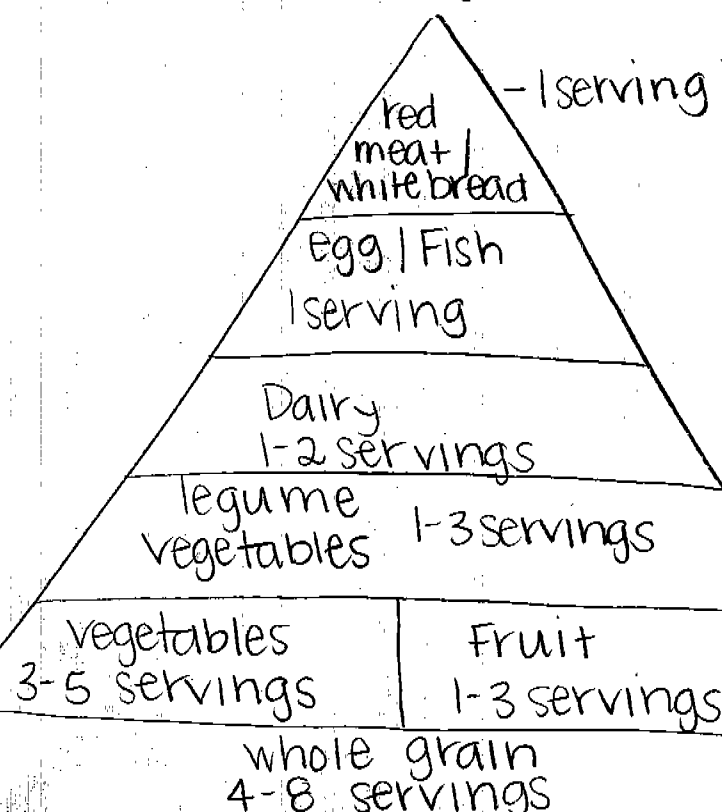 red
meat /
white bread
- 1 serving
egg / Fish
1 serving
Dairy
1-2 servings
legume
vegetables
1-3 servings
vegetables
3-5 servings
Fruit
1-3 servings
whole grain
4-8 servings